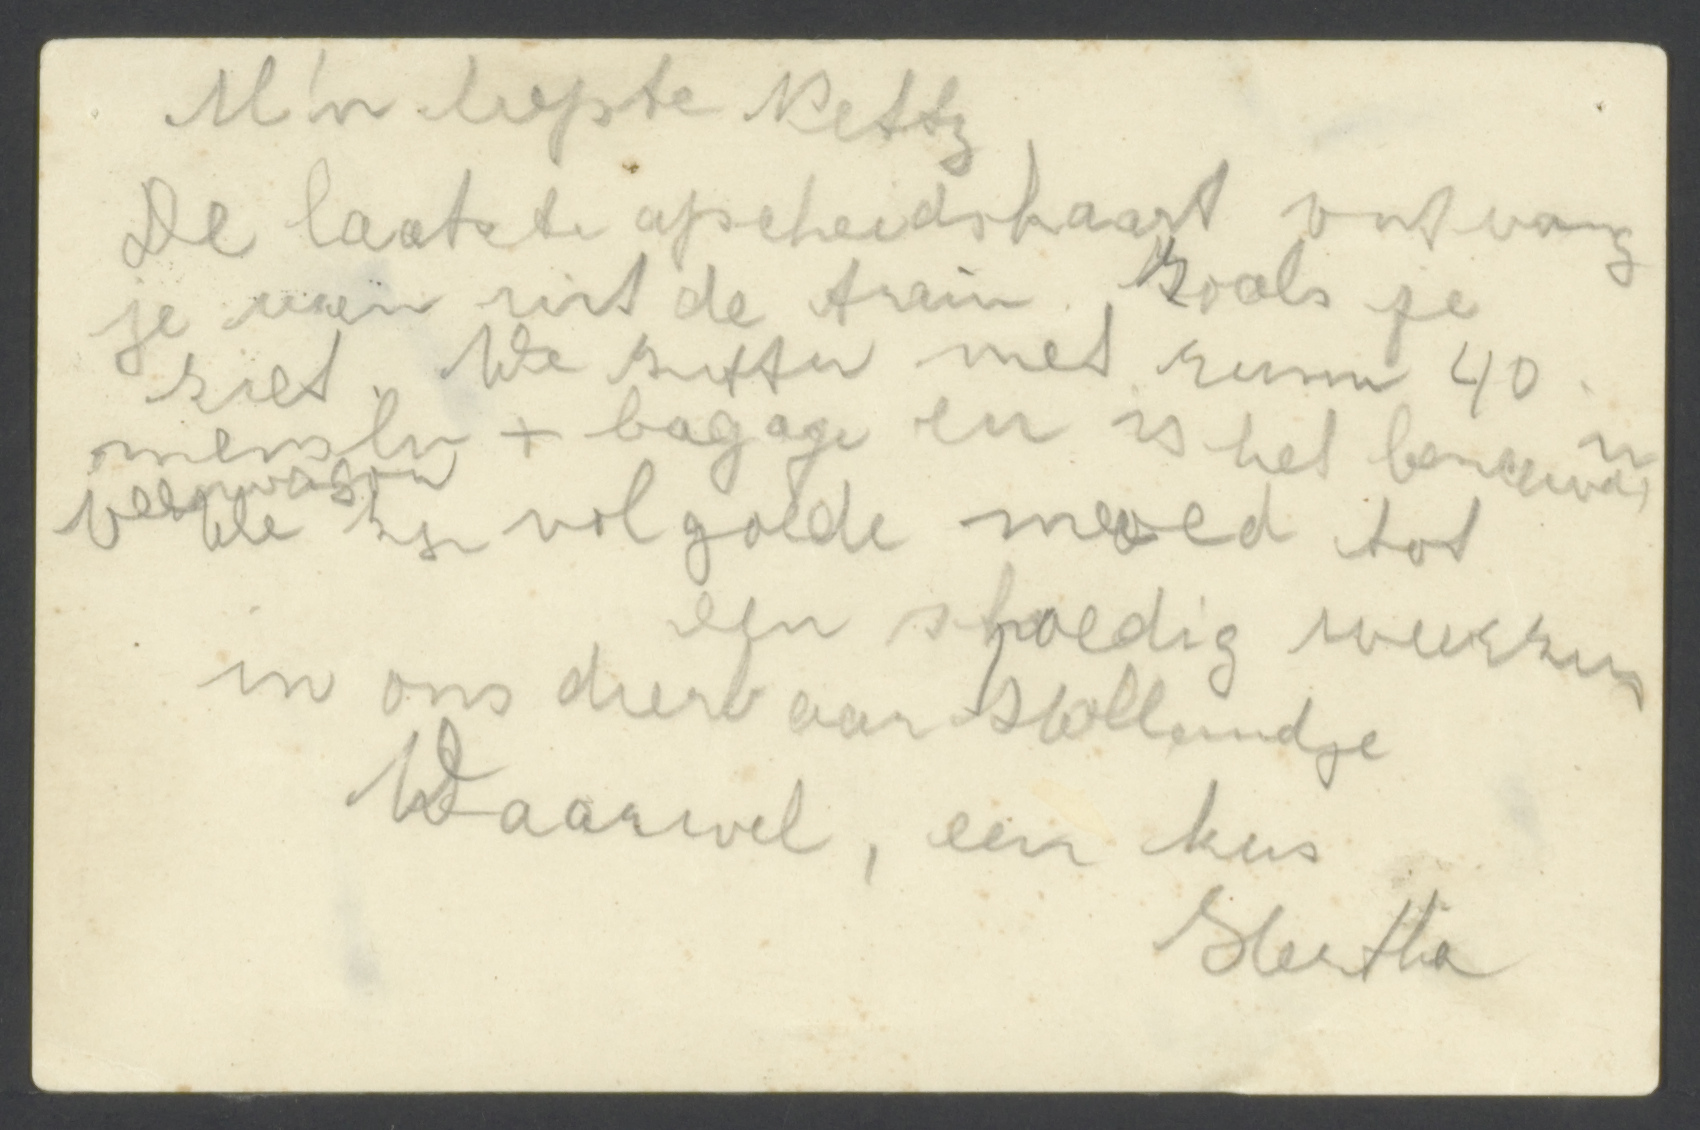 M'n liefste Netty
De laatste afscheidskaart ontvang
je van uit de train. Zoals je
ziet. We zitten met ruim 40
mensen + bagage en is het benauwd, in
veewagon
We zijn vol goede moed tot
een spoedig weerzien
in ons dierbaar Hollandje
Vaarwel, een kus
Hertha